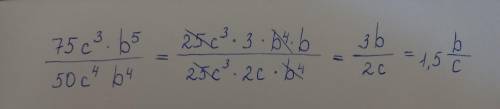 75c³ · b⁵ / 50c⁴ b⁴ = 25c³ · 3 · b⁴ · b / 25c³ · 2c · b⁴ = 3b / 2c = 1,5 b / c